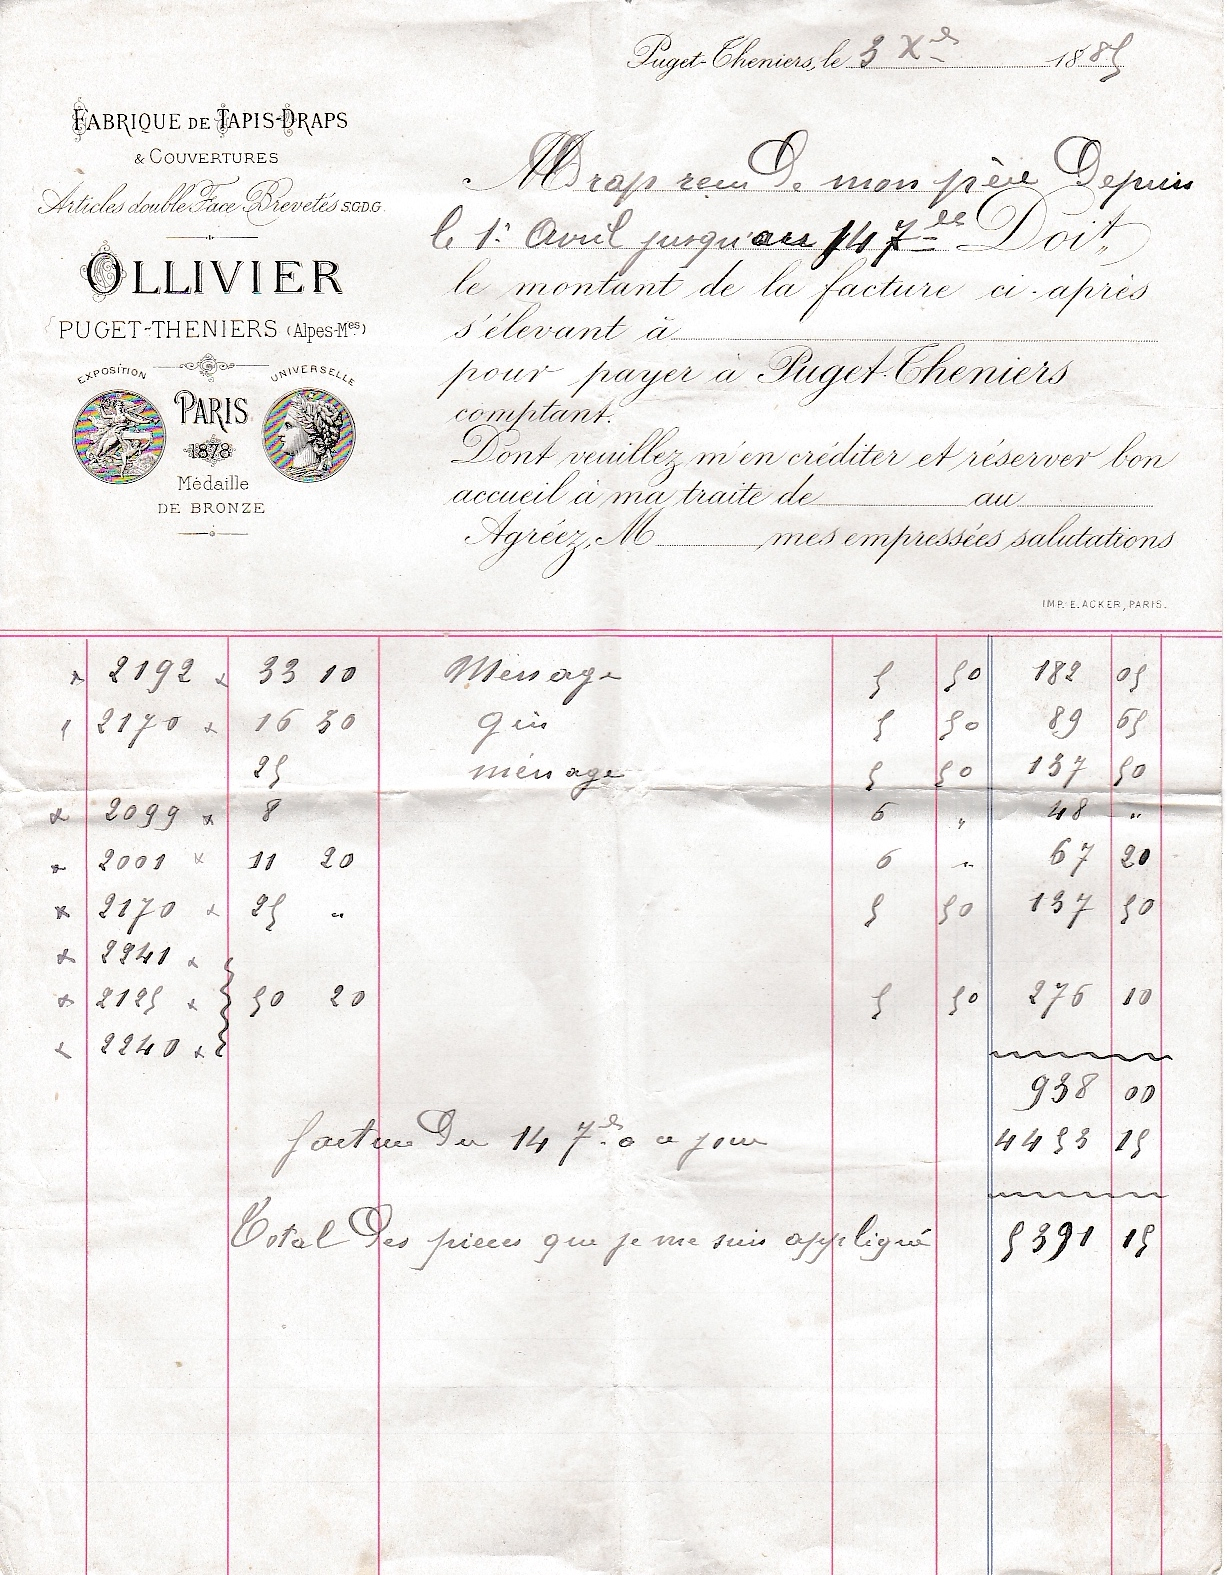 Puget-Theniers, le 3 Xbre 1885
FABRIQUE DE TAPIS-DRAPS
& COUVERTURES
Articles double Face Brevetés S.G.D.G.
OLLIVIER
PUGET-THENIERS (Alpes-Mes)
EXPOSITION UNIVERSELLE
PARIS
1878
Médaille
DE BRONZE
Drap recu De mon père Depuis
le 1r Avril jusqu'au 14 7bre Doit
le montant de la facture ci-après
s'élevant à
pour payer à Puget-Theniers
comptant.
Dont veuillez m'en créditer et réserver bon
accueil à ma traite de au
Agréez, M mes empressées salutations
IMP. E. ACKER, PARIS.
x 2192 x 33 10 Menage 5 50 182 05
2170 x 16 30 gris 5 50 89 65
25 ménage 5 50 137 50
x 2099 x 8 6 " 48 "
x 2001 x 11 20 6 " 67 20
x 2170 x 25 " 5 50 137 50
x 2241 x
x 2125 x 50 20 5 50 276 10
x 2240 x
938 00
facture Du 14 7bre a ce jour 4453 15
Total Des pieces que je me suis appliqué 5391 15